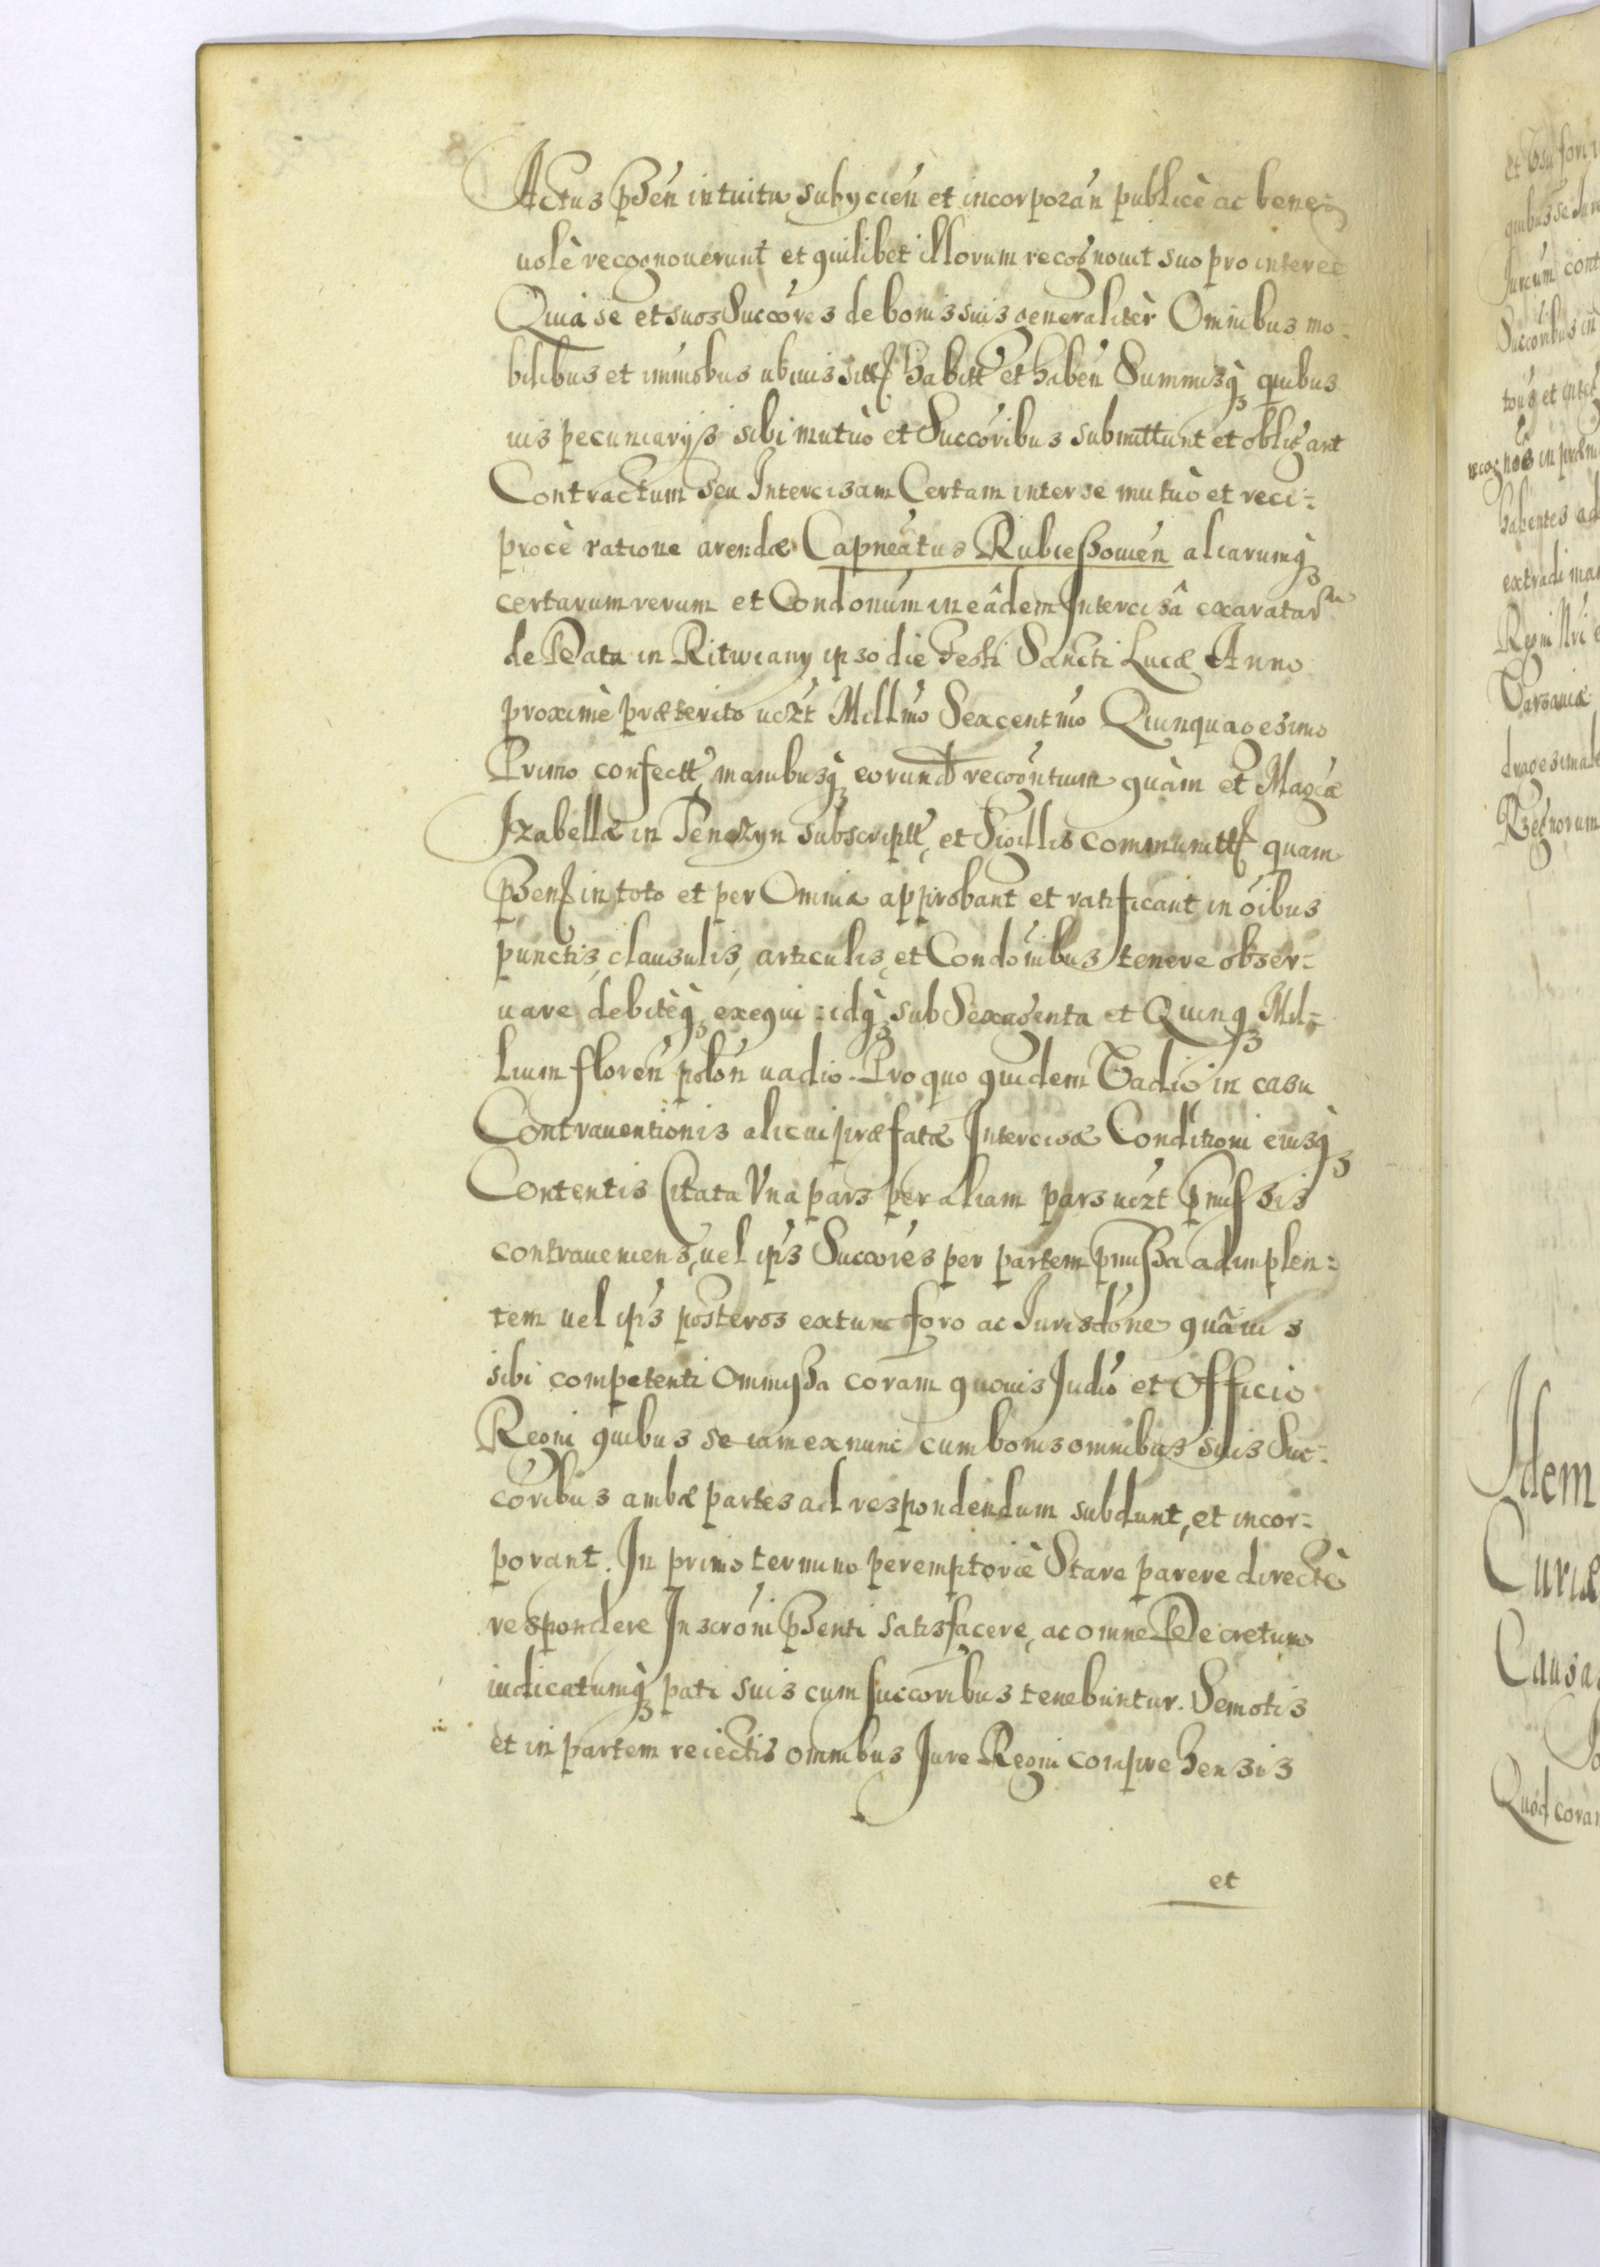 Actus pñsen intuitu subycien et incorporan publicè ac bene-
uolè recognouerunt et quilibet illorum recognouit suo pro interee
Quia se et suos Succõres de bonis suis generalitèr Omnibus mo-
bilibus et immobus ubiuis sitt habitt et haben Summisq quibus
uis pecuniarys sibi mutuò et Succõribus submittunt et obligant
Contractum seu Intercisam Certam inter se mutuò et reci-
procè ratione arendæ Capneatus Rubieszouien aliarumq
certarum rerum et Condonum in eâdem Intercisâ exaratar
de Data in Ritwiany ipso die Festi Sancti Lucæ Anno
proximè præterito uczt Millmo Sexcentmo Quinquagesimo
Primo confectt, manibusq eorund recogntium quàm et Magcæ
Izabellæ in Tenczyn subscriptt, et Sigillis communitt quam
pñsen in toto et per Omnia approbant et ratificant in õibus
punctis, clausulis, articulis, et Condõnibus tenere obser-
uare, debitèq exequi idq sub Sexagenta et Quinq Mil-
lium floren polon uadio. Pro quo quidem Vadio in casu
Contrauentionis alicui præfatæ Intercisæ Conditioni eiusq
Contentis Citata Vna pars per aliam pars uczt pmissis
contraueniens, uel ipis Succõres per partem pmissa adimplen-
tem uel ipis posteros extunc foro ac Jurisdõne quâuis
sibi competenti Ommissa coram quouis Judio et Officio
Regni quibus se iam ex nunc cum bonis omnibus suis Suc-
cõribus ambæ partes ad respondendum subdunt, et incor-
porant. In primo termino peremptoriè Stare parere directè
respondere Inscrõni pñsenti satisfacere, ac omne Decretum
iudicatumq pati suis cum succoribus tenebuntur. Semotis
et in partem reiectis omnibus Jure Regni comprehensis
et
Idem
Curiæ
Causa
Quod coram